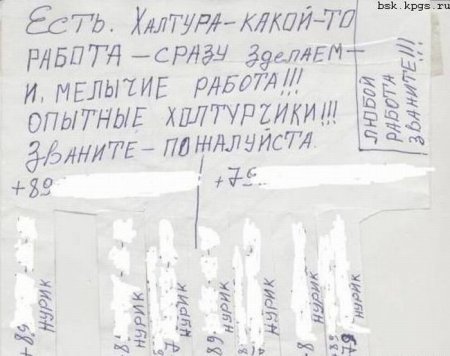 bsk.kpgs.ru
Есть. Халтура-какой-то
работа-сразу зделаем-
и, мелычие работа!!!
опытные холтурчики!!!
званите-пожалуйста.
любой
работа
званите!!!
+89
+79
+89
Нурик
8
Нурик
+7
Нурик
89
Нурик
+7
Нурик
+8
Нурик
89
+79
Нурик